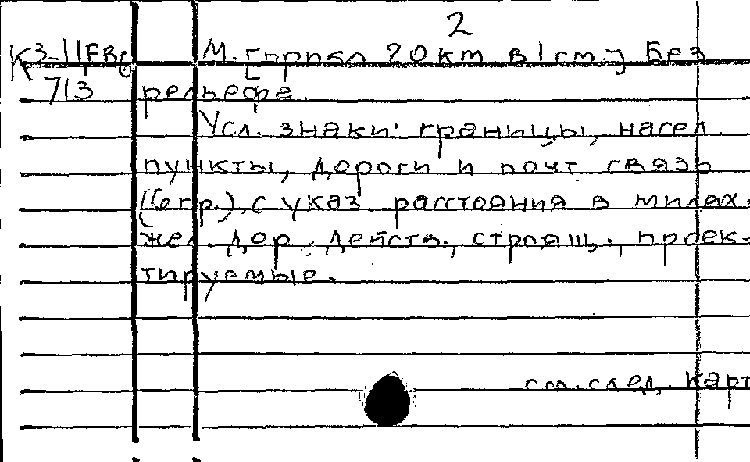 2
К3-11ЕВр М. [прибл 20 km в 1 cm.] Без
713 рельефа.
Усл. знаки: границы, насел.
пункты, дороги и почт связь
(6 гр.), с указ. расстояния в милях.
жел. дор. действ., строящ., проек-
тируемые.
см. след. карт